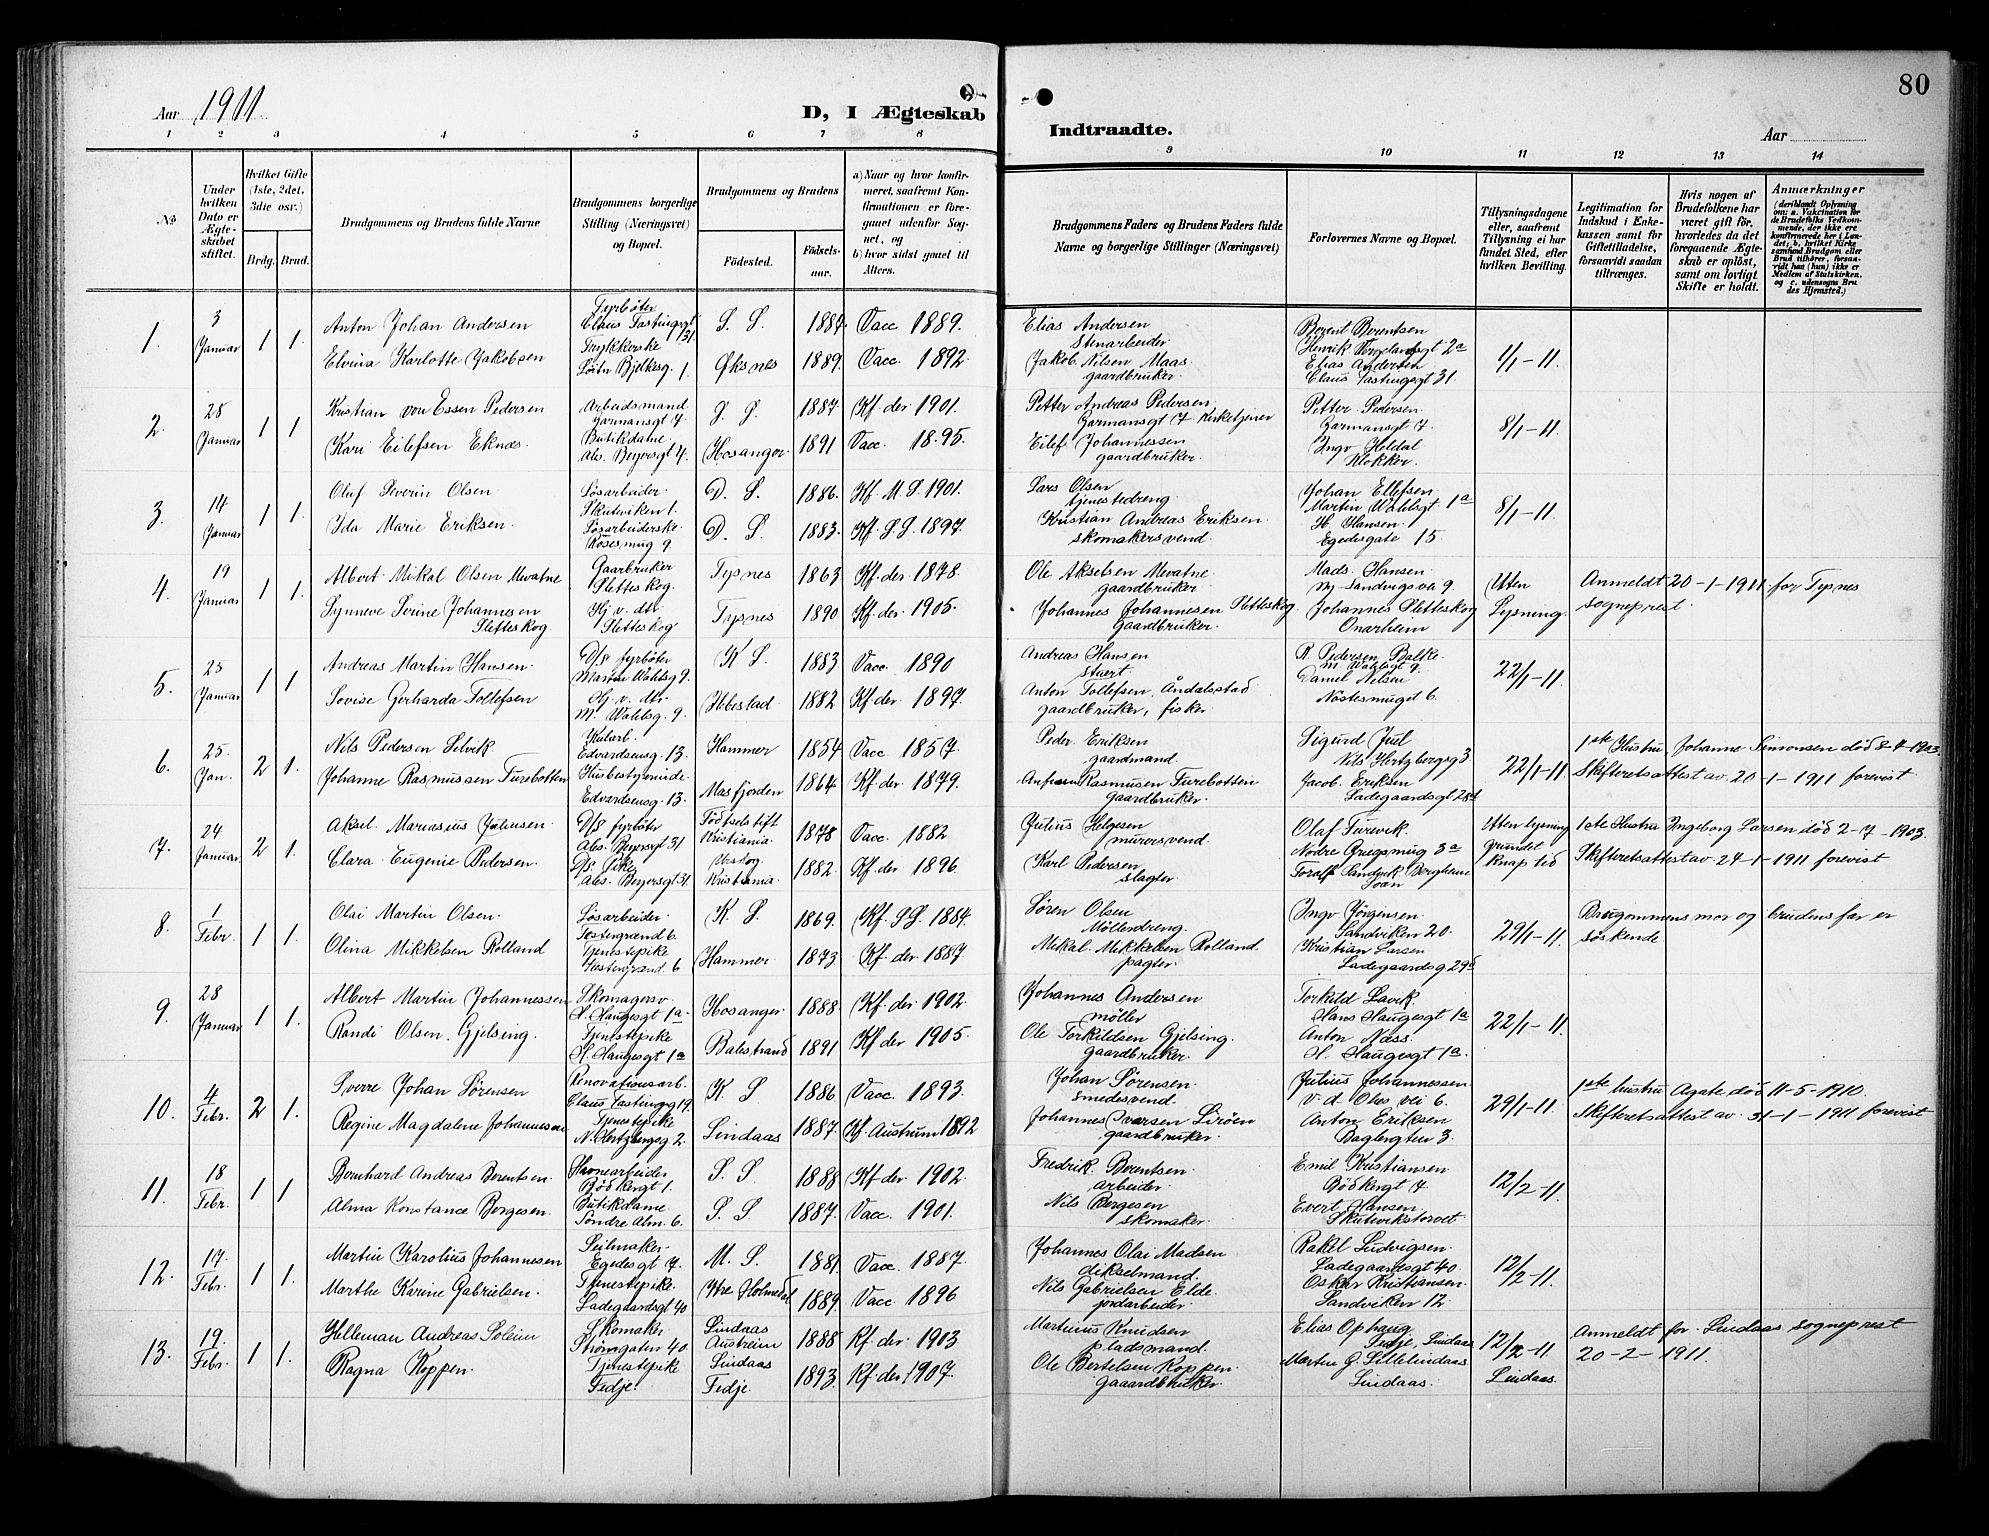 80
Aar 1911
D, I Ægteskab
Indtraadte.
Aar
1 2 3 4 5 6 7 8
9 10 11 12 13 14
No
Under hvilken Dato er Ægteskabet stiftet.
Hvilket Gifte (1ste, 2det, 3die osv.)
Brdg. Brud.
Brudgommens og Brudens fulde Navne
Brudgommens borgerlige Stilling (Næringsvei) og Bopæl.
Brudgommens og Brudens
Fødested.
Fødselsaar.
a) Naar og hvor konfirmeret, saafremt Konfirmationen er foregaaet udenfor Sognet, og
b) hvor sidst gaaet til Alters.
Brudgommens Faders og Brudens Faders fulde Navne og borgerlige Stillinger (Næringsvei)
Forlovernes Navne og Bopæl.
Tillysningsdagene eller, saafremt Tillysning ei har fundet Sted, efter hvilken Bevilling.
Legitimation for Indskud i Enkekassen samt for Giftetilladelse, forsaavidt saadan tiltrænges.
Hvis nogen af Brudefolkene har været gift før, hvorledes da det foregaaende Ægteskab er opløst, samt om lovligt Skifte er holdt.
Anmærkninger
(deriblandt Oplysning om: a. Vakcination for de Brudefolks Vedkommende, der ikke ere konfirmerede her i Landet; b. hvilket Kirkesamfund Brudgom eller Brud tilhører, forsaavidt han (hun) ikke er Medlem af Statskirken, og c. udensogns Brudes Hjemsted.)
1. 3 Januar 1 1.
Anton Johan Andersen
Fyrbøter Claus Fastingsgt 31.
S. S. 1887. Vacc 1889.
Elias Andersen
stenarbeider
Berent Berentsen
1/1-11.
Elvina Karlotte Jakobsen
Øksnes 1889. Vacc. 1892.
Jakob Nilsen Maas
gaardbruker.
Elias Andersen
Claus Fastingsgt 31.
2. 28 Januar 1 1
Kristian von Essen Pedersen
Arbeidsmand
1887. Kf. der 1901.
Petter Andreas Pedersen
Garmansgt 7 Kirketjener
Petter Pedersen
Garmansgt 7.
8/1-11.
Kari Eilefsen Eknæs.
Butikdame
Hosanger. 1891 Vacc 1895.
Eilef Johannessen
gaardbruker.
Ingv Heldal
Klokker.
3. 14 Januar 1 1.
Oluf Severin Olsen
Løsarbeider
Skuteviken 1.
D. S. 1886. Kf. M. S. 1901.
Lars Olsen
tjenestedreng.
Johan Ellefsen
Martin Wahlsgt 1a
8/1-11.
Ida Marie Eriksen.
Løsarbeiderske
D. S. 1883. 1897.
Kristian Andreas Eriksen
skomakersvend.
H. Hansen.
Egedesgate 15.
4. 19 Januar 1 1.
Albert Mikal Olsen Mevatne
Gaarbruker
Sletteskog.
Tysnes 1863 Kf. der 1878.
Ole Akselsen Mevatne
gaardbruker
Mads Hansen.
Uten Lysning.
Anmeldt 20-1-1911 for Tysnes sogneprest.
Synneve Sovine Johannesen Sletteskog
Hj. v. dtr Sletteskog
Tysnes 1890 Kf. der 1905.
Johannes Johannesen Sletteskog
Gaardbruker.
Johannes Sletteskog
Onarheim
5. 25 Januar 1 1
Andreas Martin Hansen.
D/s fyrbøter
Martin Wahlsg 9.
K S. 1883. Vacc. 1890
Andreas Hansen
stuert
R. Pedersen Balke.
M. Wahlsgt 9.
22/1-11.
Lovise Gerharda Tollefsen
Hj. v. dtr
M. Wahlsg. 9.
Ibbestad 1882 Kf. der 1897.
Anton Tollefsen, Åndalsstad
gaardbruker, fisker.
Daniel Nilsen
Nöstesmuget 6.
6. 25. Jan. 2 1.
Nils Pedersen Selvik
Edvardsensg. 13.
Hammer 1854 Vacc 1857.
Peder Eriksen
gaardmand.
Sigurd Juul
Nils Hertzbergsg 3
22/1-11.
1ste Hustru Johanne Simonsen död 8-7-1903.
Johanne Rasmussen Furebotten
Husbestyrerinde
Edvardsensg. 13.
Masfjorden 1864 Kf. der 1879.
Rasmusen Furebotten
Gaardbruker.
Jacob Eriksen
Ladegaardsgt 28
Skifteretsattest av 20-1-1911 forevist
7. 24 Januar 2 1.
Aksel Mariasius Juliusen
D/s fyrbøter
Abs. Beyersgt 31
Födselsstift Kristiania 1878 Vacc. 1882
Julius Helgesen
murersvend.
Olaf Furevik.
Nodre Griegsmug 3a
Uten lysning grundet knap tid
1ste Hustru Ingeborg Larsen död 2-7-1903.
Clara Eugenie Pedersen.
Abs. Beyersgt 31.
Kristiania 1882. Kf. der 1896.
Karl Pedersen
slagter.
Skifteretsattest av 24-1-1911 forevist
8. 1 Febr. 1 1.
Olai Martin Olsen.
Løsarbeider
K. S. 1869. 1884.
Søren Olsen
Möllerdreng.
Ingv Jörgensen
Sandviken 20.
29/1-11.
Brugommens mor og brudens far er söskende
Olina Mikkelsen Rolland
Tjenestepike
Hammer 1873 Kf. der 1887
Mikal Mikkelsen Rolland
pagter.
Kristian Larsen
Ladegaardsg 29
9. 28 Januar 1 1.
Albert Martin Johannessen
Skomagersv.
H. Haugesgt 1a.
Hosanger 1888 Kf. der 1902.
Johannes Andersen
möller
Torkild Lavik.
Hans Haugesgt 1a
22/1-11.
Randi Olsen Gjelsing.
Tjenestepike
H. Haugesgt 1a
Balestrand 1891 Kf der 1905.
Ole Torkildsen Gjelsing.
gaardbruker.
Anton Næss.
H. Haugesgt 1a.
10. 4 Febr. 2 1.
Sverre Johan Sörensen
Renovationsarb.
Claus Fastingsg 19.
K. S 1886 Vacc. 1893
Johan Sörensen.
smedesvend.
Julius Johannessen
v. d. Olos vei 6.
29/1-11.
1ste hustru Agate död 11-5-1910.
Regine Magdalene Johannesen
Tjenestepike
N. Hertzbergsg 2.
Lindaas 1887.
Johannes Iversen Liröen
gaardbruker.
Anton Eriksen
Skifteretsattest av 31-1-1911 forevist
11. 18 Febr. 1 1
Bernhard Andreas Berentsen.
Havnearbeider
Bödkergt 1.
S. S 1888 Kf. der 1902.
Fredrik Berentsen.
arbeider.
Emil Kristiansen
Bödkergt 7
12/2-11.
Alma Konstance Börgesen.
Butikdame
Söndre Alm. 6.
S. S 1887. Vacc. 1901.
Nils Börgesen
skomaker.
Evert Hansen
Skutevikstorvet
12. 17. Febr. 1 1.
Martin Karolius Johannesen
Seilmaker
Egedesgt 7.
M. S. 1881. Vacc. 1887.
Johannes Olai Madsen
dikselmand.
Rakel Ludvigsen
Ladegaardsgt 40
12/2-11.
Marthe Karine Gabrielsen.
Tjenestepike
Ladegaardsgt 40
Ytre Holmedal 1889. Vacc 1896
Nils Gabrielsen Elde
jordarbeider.
Oskar Kristiansen.
Sandviken 12.
13. 19. Febr. 1 1.
Helleman Andreas Soleim
Skomaker
Strömgaten 40.
Lindaas Austreim 1888 Kf. der 1903
Martinus Knudsen
pladsmand.
Elias Ophaug
Fedje, Lindaas
12/2-11. Lindaas.
Anmeldt for Lindaas sogneprest 20-2-1911.
Ragna Koppen.
Tjenestepike
Fedje.
Lindaas Fedje 1893. Kf. der 1907.
Ole Bertelsen Koppen.
Gaaardbruker.
Martin G. Lillelindaas
Lindaas.